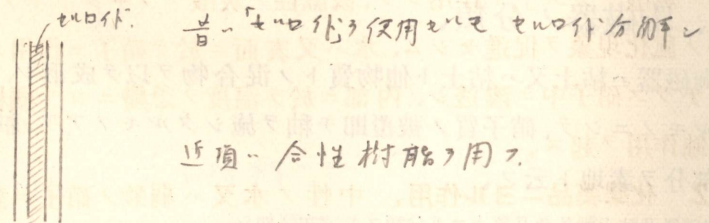 セルロイド.
昔ハ「セルロイド」ヲ使用セルモ セルロイド分解シ
近頃ハ 合性樹脂ヲ用フ.